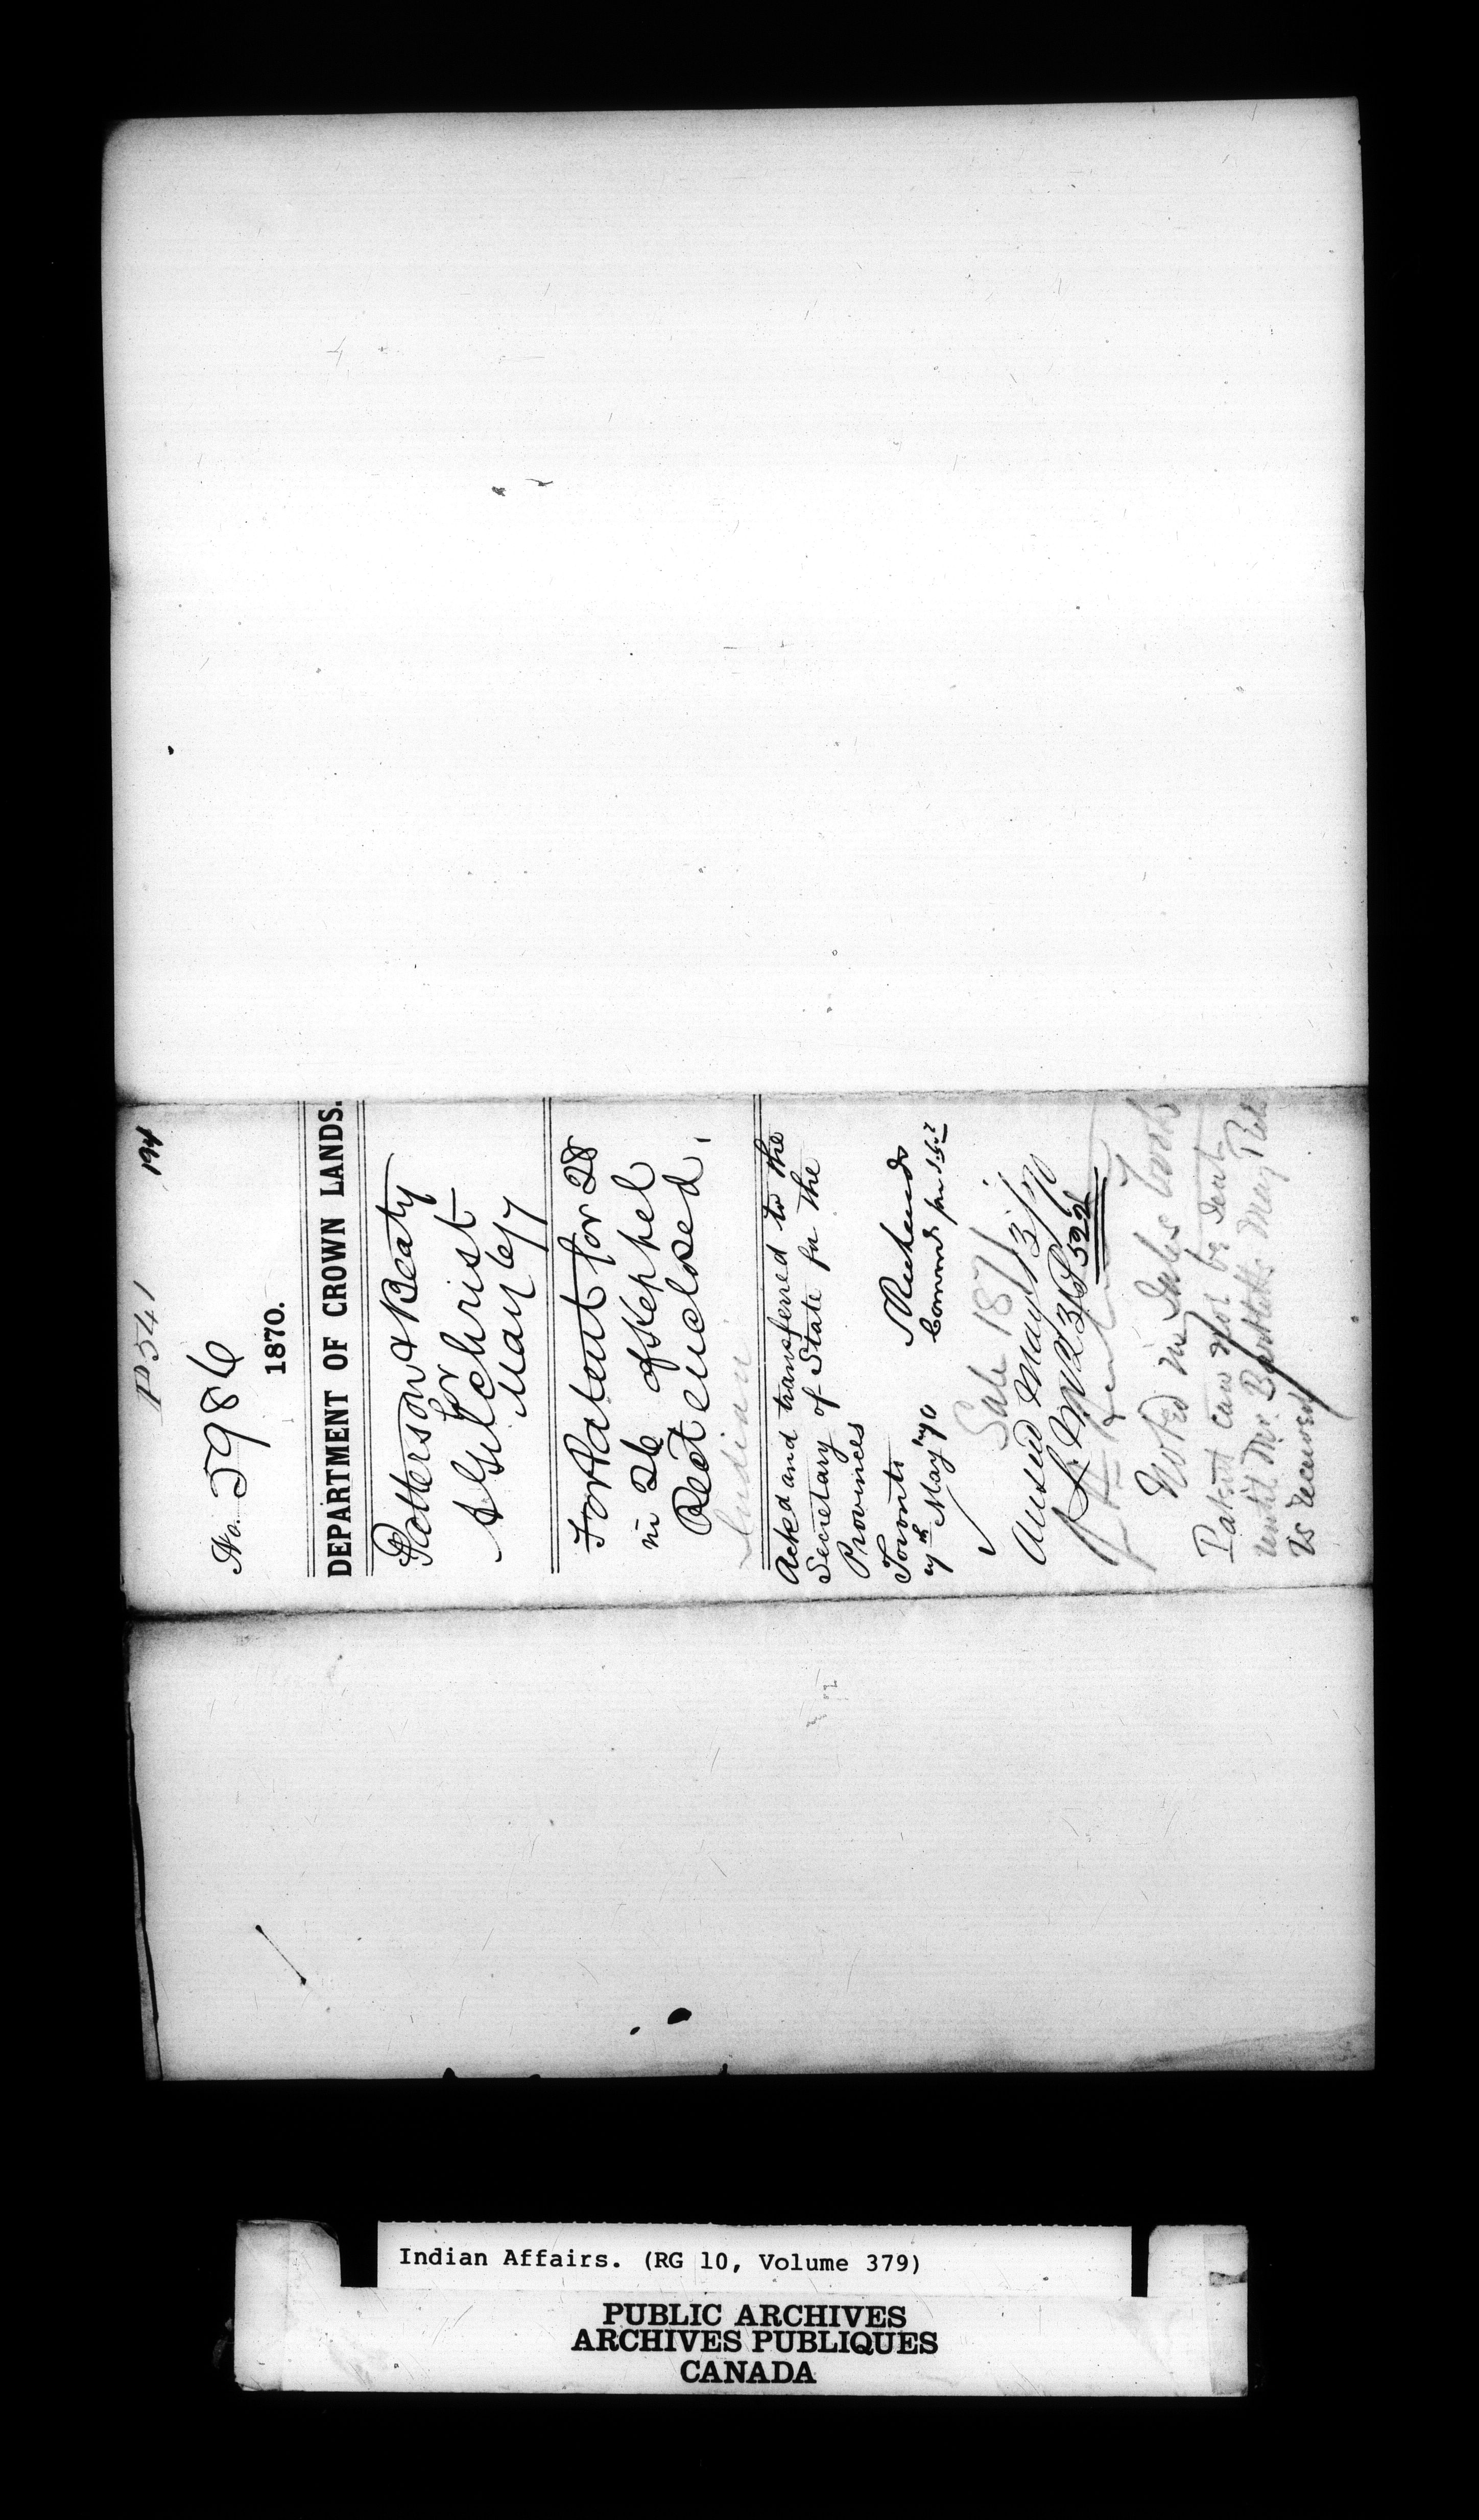 P 541
194
No. 5986
1870.
DEPARTMENT OF CROWN LANDS.
Patterson & Beaty
for
A Gilchrist
May 6/7
For Patent for 28
in 26 of Keppel
Rect enclosed.
Indian
Acked and transferred to the
Secretary of State for the
Provinces
Toronto
7th May 1870
Richards
Sale 1871
Ansed May 13/70
L. M. 231 P 522
Noted in Sales book
Patent can not be sent
until Mr. Bartlett's May Rets
is received
Indian Affairs. (RG 10, Volume 379)
PUBLIC ARCHIVES
ARCHIVES PUBLIQUES
CANADA